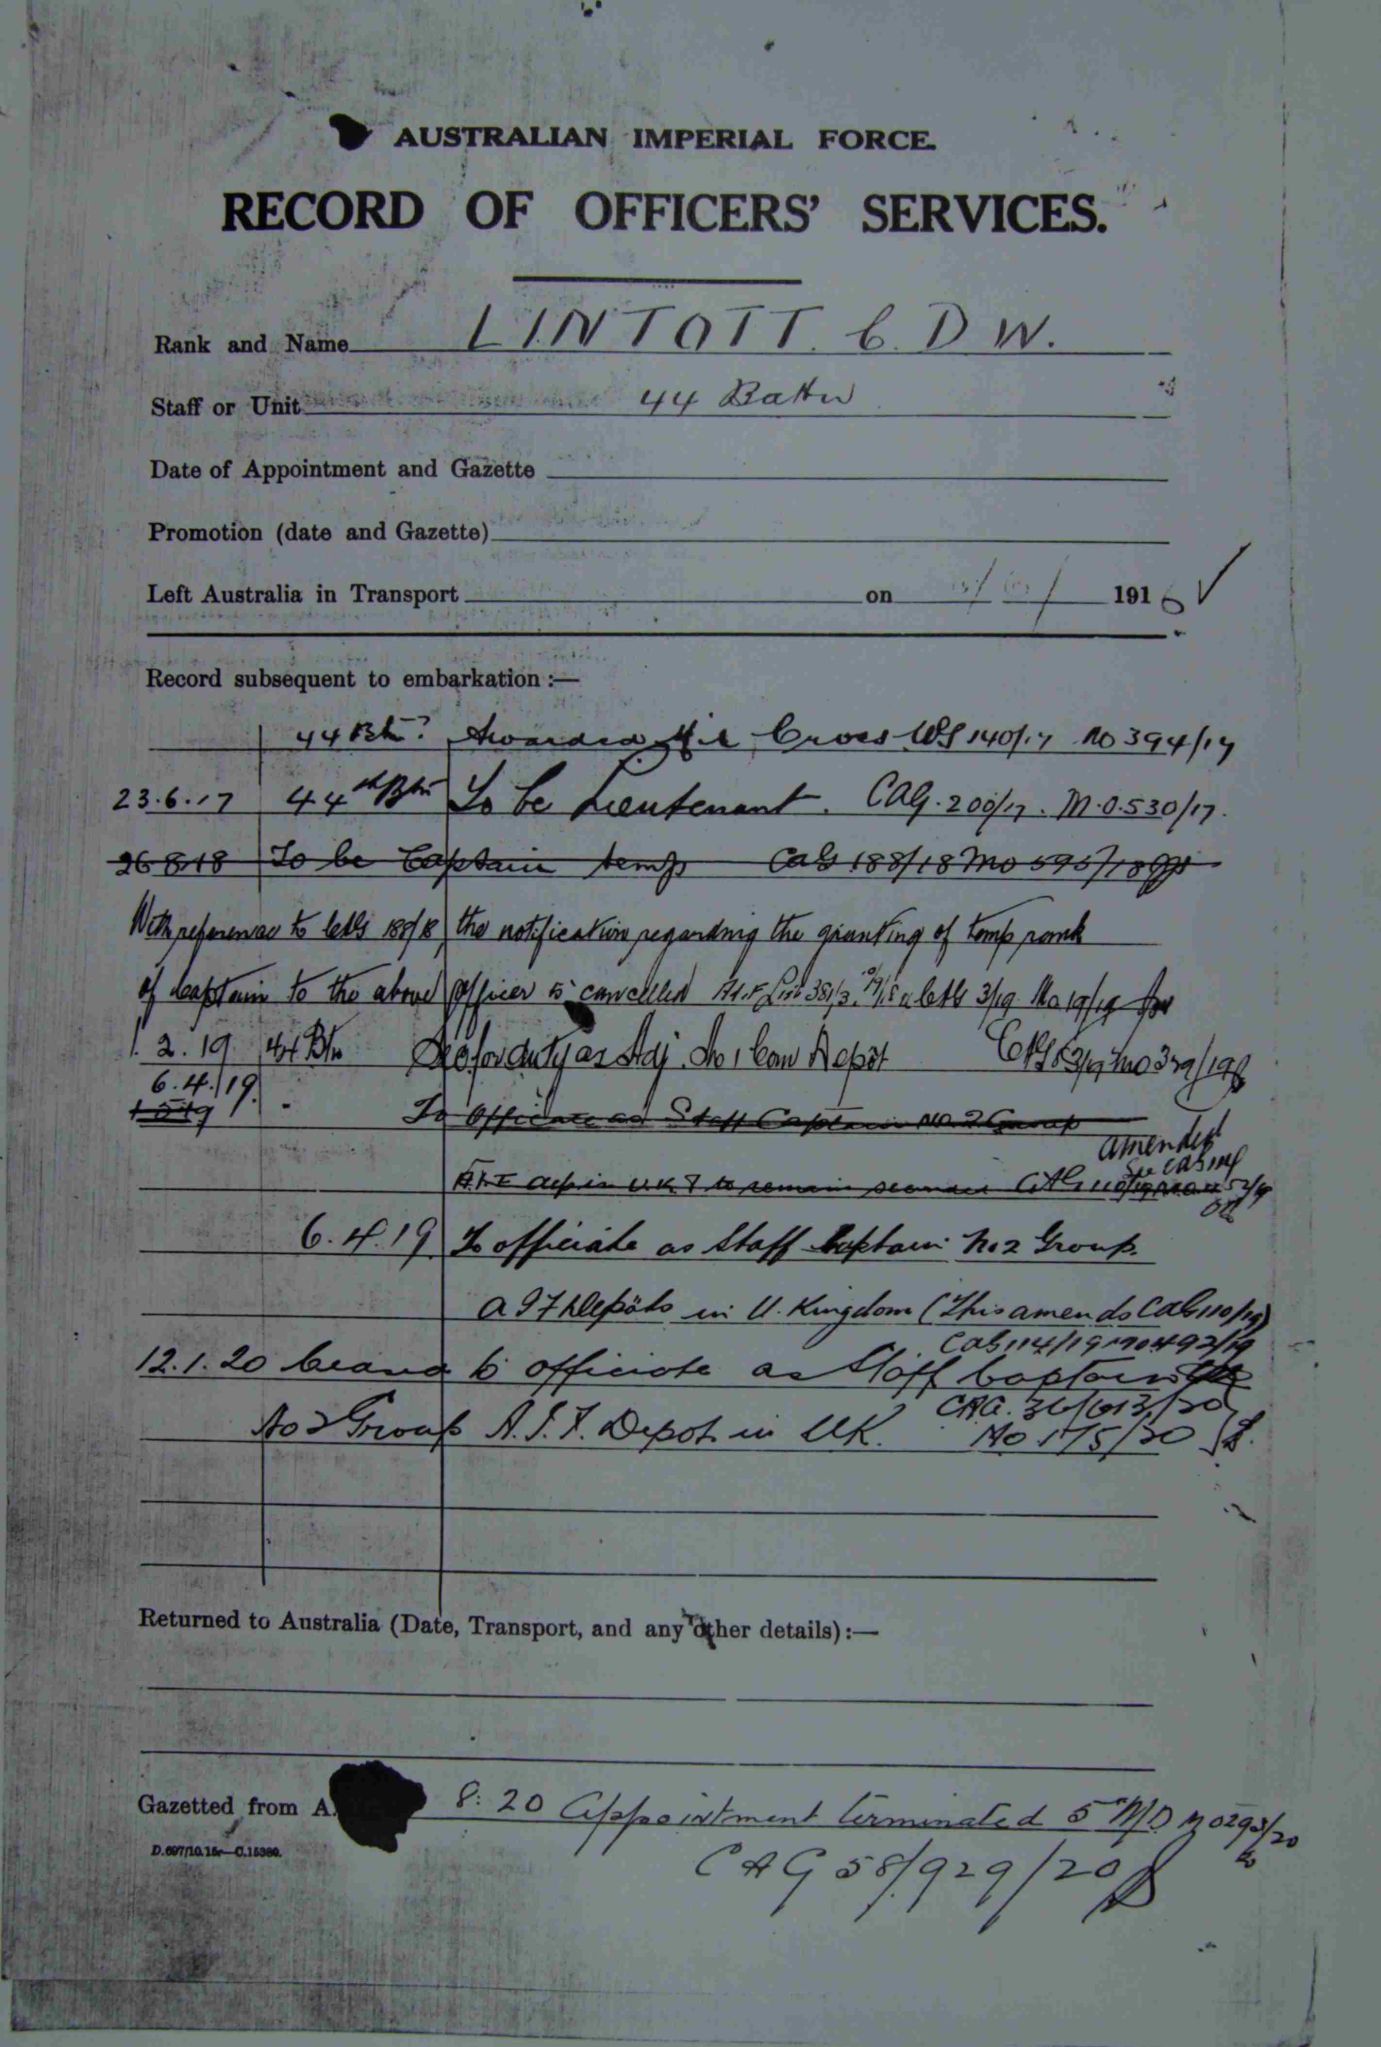 AUSTRALIAN IMPERIAL FORCE.
RECORD OF OFFICERS' SERVICES.
Rank and Name LINTOTT. C. D W.
Staff or Unit 44 Battn
Date of Appointment and Gazette
Promotion (date and Gazette)
Left Australia in Transport on 1916
Record subsequent to embarkation :—
44 Btn Awarded Mil Cross CAG 140/17 MO 394/17
23.6.17 44th Btn To be Lieutenant. CAG. 200/17. M.O. 530/17.
26.8.18 To be Captain temp CAG 188/18 MO 595/18
With reference to CAG 188/18, the notification regarding the granting of temp rank
of Captain to the above officer is cancelled AIF List 381/3 CAG 3/19 Mo 19/19
1.2.19 44 Btn Sec for duty as Adj. No 1 Com Depot CAG 83/19 MO 329/19
6.4.19.
1.5.19 To Officate as Staff Captain No. 2 Group
amended
See CAG 114
A.I.F. in U.K. & to remain seconded CAG 110/19
6.4.19. To officiate as Staff Captain No 2 Group.
A I F Depots in U. Kingdom (This amends CAG 110/19)
CAG 114/19 MO 492/19
12.1.20 Ceases to officiate as Staff Captain
No 2 Group A.I.F. Depots in UK. CAG. 36/613/20
Mo 175/20
Returned to Australia (Date, Transport, and any other details) :—
Gazetted from A. 8. 20 Appointment terminated 5 M/D MO 293/20
D.697/10.15.—C.15380.
CAG 58/929/20